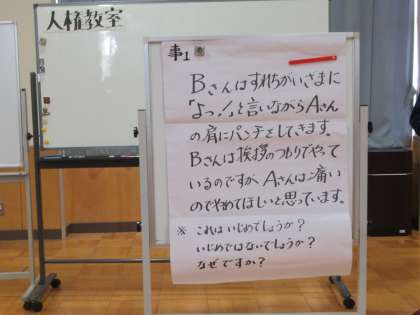 人権教室
事1
Bさんはすれちがいざまに
「よっ!」と言いながらAさん
の肩にパンチをしてきます。
Bさんは挨拶のつもりでやって
いるのですが、Aさんは痛い
のでやめてほしいと思っています。
※ これはいじめでしょうか?
いじめではないでしょうか?
なぜですか?